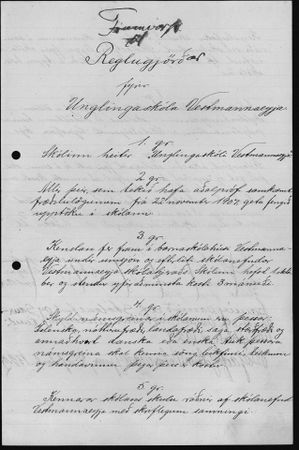 Frumvarp
til
Reglugjörðar
fyrir
Unglingaskóla Vestmannaeyja
1. gr.
Skólinn heitir Unglingaskóli Vestmannaeyja
2. gr.
Allir þeir, sem tekið hafa aðalpróf samkvæmt
fræðslulögunum frá 22 nóvember 1907 geta fengið
upptöku í skólann
3. gr.
Kenslan fer fram í barnaskólahúsi Vestmanna-
eyja undir umsjón og eftirliti skólanefndar
Vestmannaeyja skólahjeraðs. Skólinn hefst 1 október
ber og stendur yfir að minsta kosti 3 mánuði
4. gr.
Skyldunámsgreinar í skólanum eru þessar
íslenska, náttúrufræði, landafræði, saga
annaðhvort danska eða enska. Auk þessara
námsgreina skal kenna söng, leikfimi, teiknun
og handavinnu þegar þess er kostur
5. gr.
Kennarar skólans skulu ráðnir af skólanefnd
Vestmannaeyja með skriflegum samningi